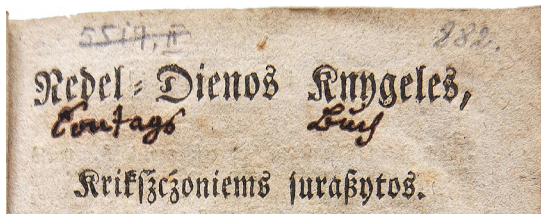 5517, II 282.
Nedel-Dienos Knygeles,
Sontags Buch
Krikſzcżoniems ſuraßytos.